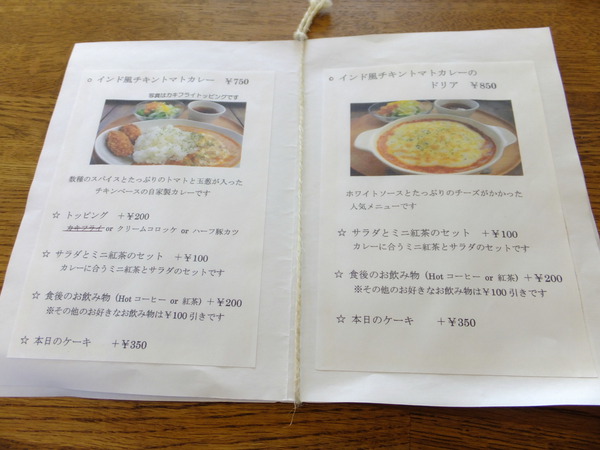 ○ インド風チキントマトカレー ¥750
写真はカキフライトッピングです
数種のスパイスとたっぷりのトマトと玉葱が入った
チキンベースの自家製カレーです
☆ トッピング ＋¥200
カキフライ or クリームコロッケ or ハーフ豚カツ
☆ サラダとミニ紅茶のセット ＋¥100
カレーに合うミニ紅茶とサラダのセットです
☆ 食後のお飲み物（Hot コーヒー or 紅茶）＋¥200
※その他のお好きなお飲み物は¥100 引きです
☆ 本日のケーキ ＋¥350
○ インド風チキントマトカレーの
ドリア ¥850
ホワイトソースとたっぷりのチーズがかかった
人気メニューです
☆ サラダとミニ紅茶のセット ＋¥100
カレーに合うミニ紅茶とサラダのセットです
☆ 食後のお飲み物（Hot コーヒー or 紅茶）＋¥200
※その他のお好きなお飲み物は¥100 引きです
☆ 本日のケーキ ＋¥350